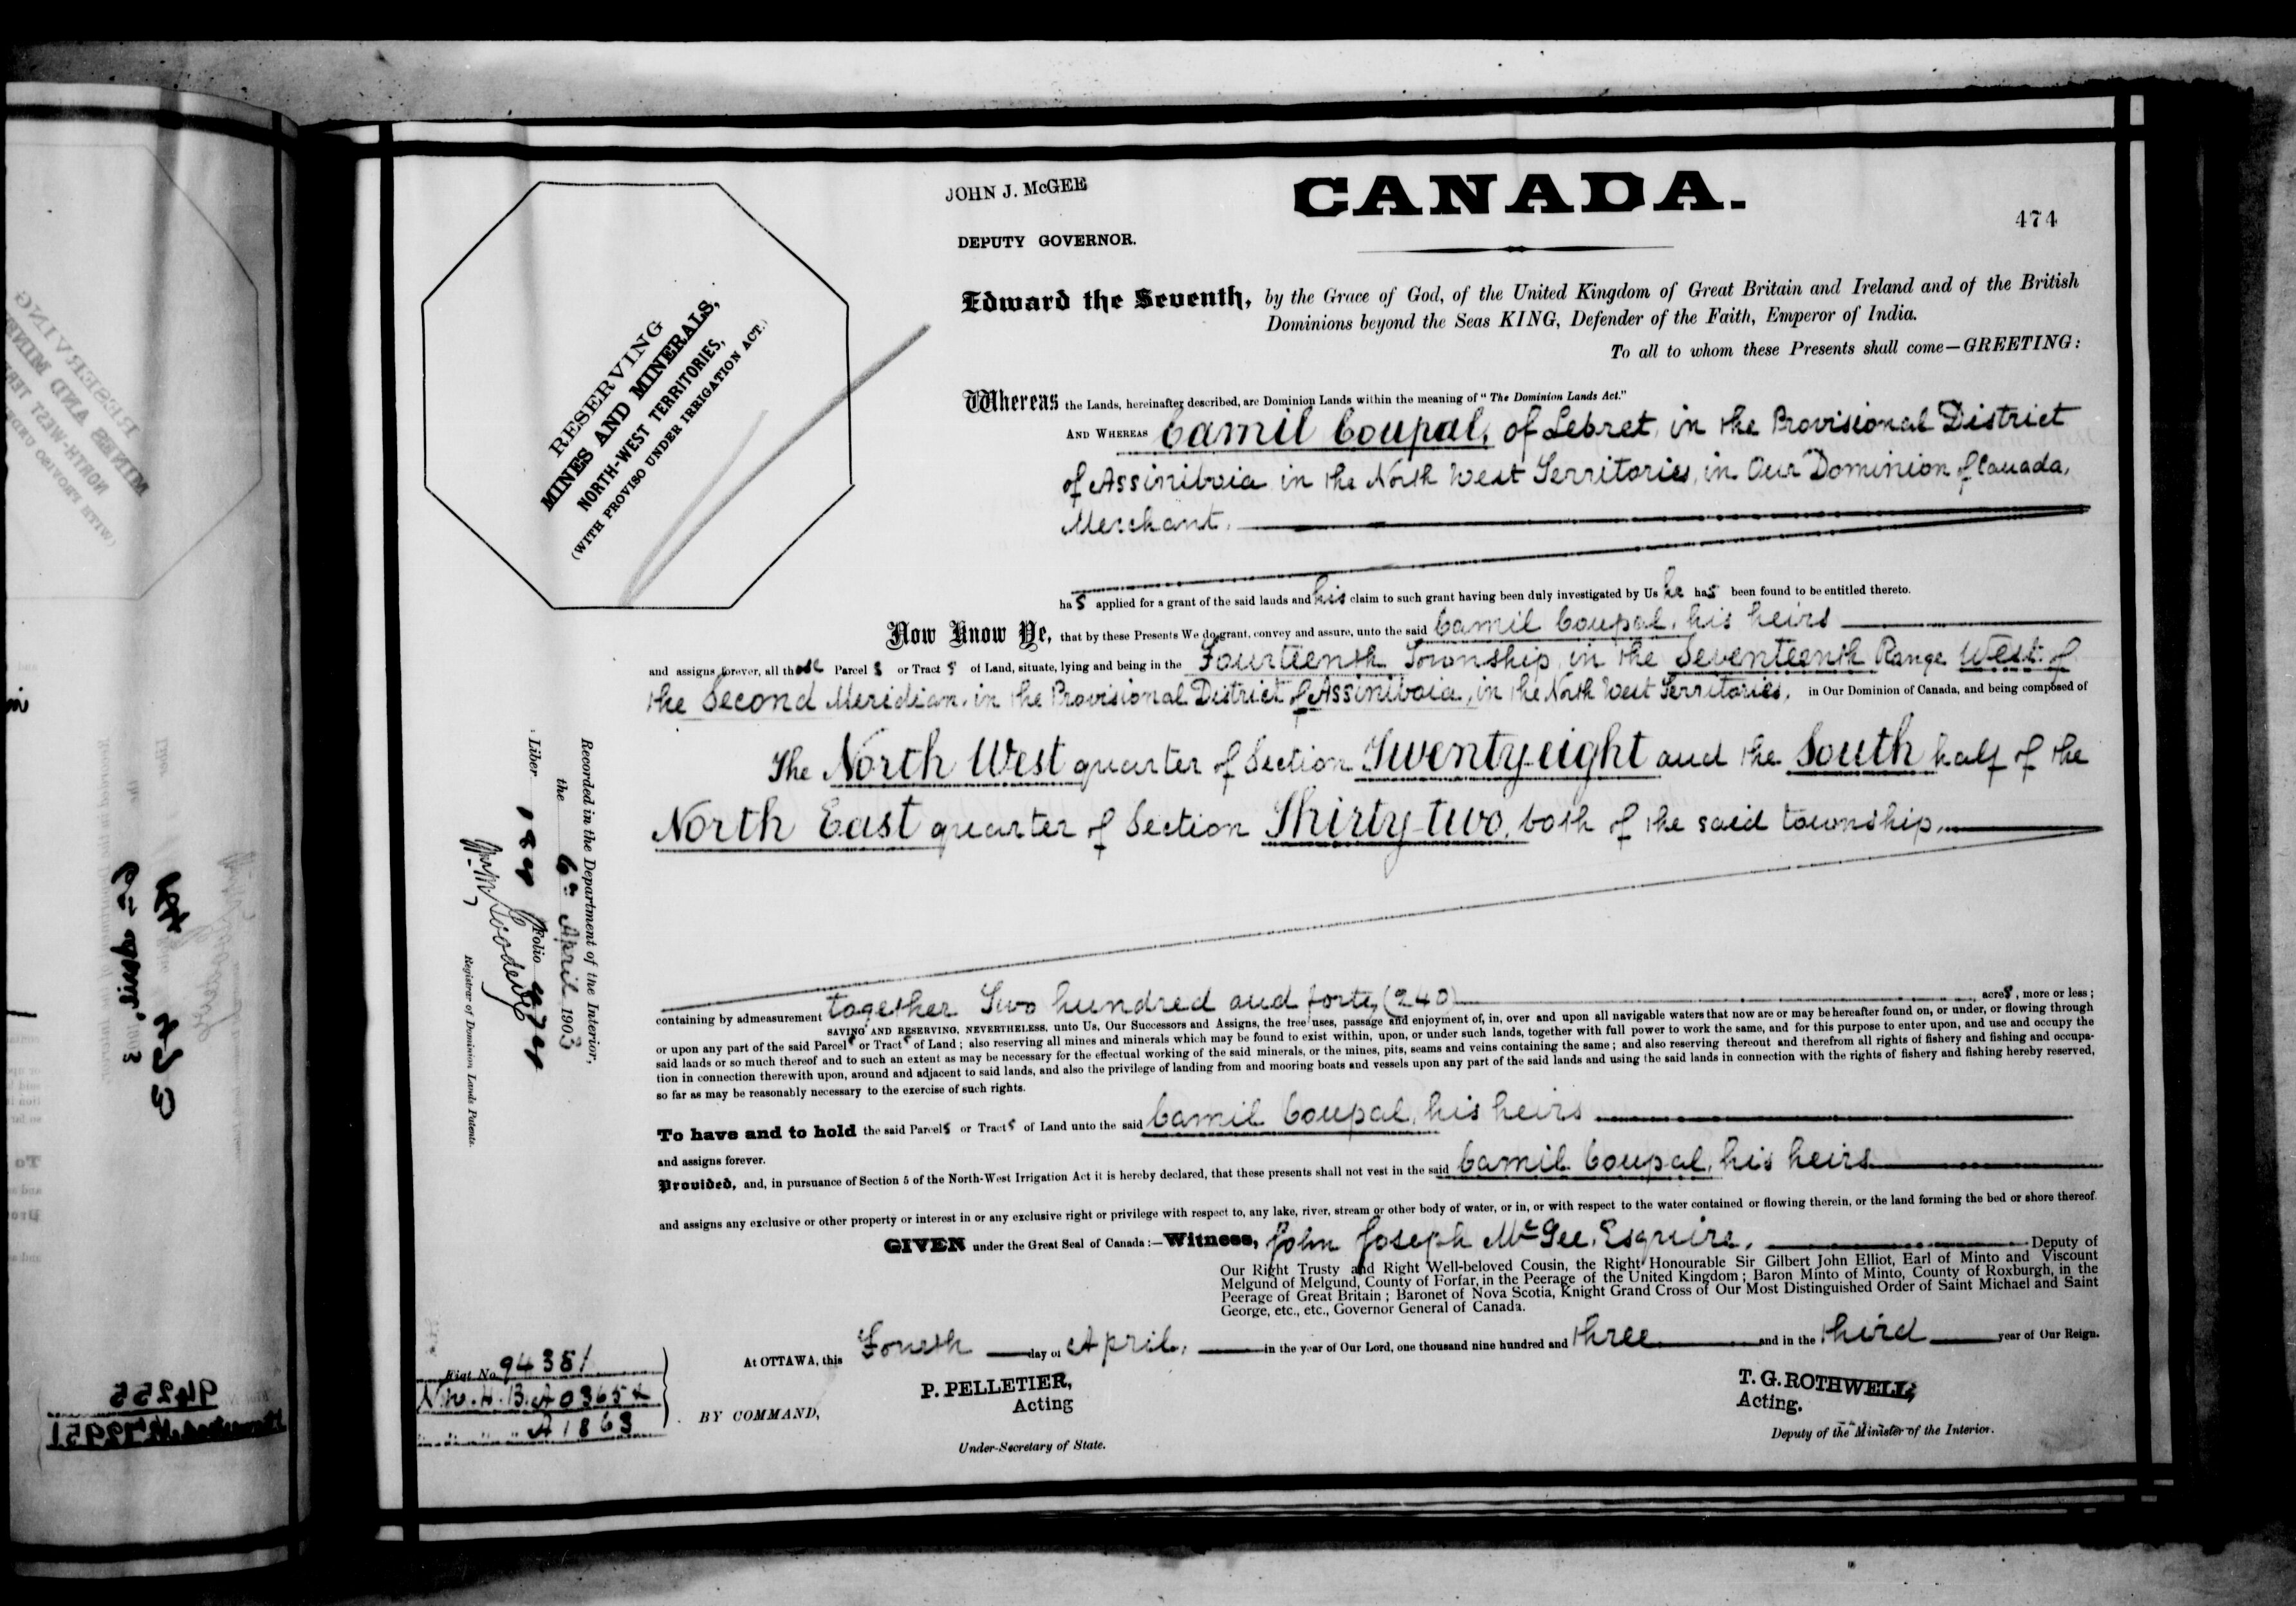 JOHN J. McGEE
DEPUTY GOVERNOR.
CANADA.
474
RESERVING
MINES AND MINERALS,
NORTH-WEST TERRITORIES,
(WITH PROVISO UNDER IRRIGATION ACT.)
Edward the Seventh, by the Grace of God, of the United Kingdom of Great Britain and Ireland and of the British
Dominions beyond the Seas KING, Defender of the Faith, Emperor of India.
To all to whom these Presents shall come—GREETING:
Whereas the Lands, hereinafter described, are Dominion Lands within the meaning of "The Dominion Lands Act."
AND WHEREAS Camil Coupal, of Lebret, in the Provisional District
of Assiniboia in the North West Territories, in Our Dominion of Canada,
Merchant.
has applied for a grant of the said lands and his claim to such grant having been duly investigated by Us he has been found to be entitled thereto.
Now Know Ye, that by these Presents We do grant, convey and assure, unto the said Camil Coupal, his heirs
and assigns forever, all those Parcels or Tracts of Land, situate, lying and being in the Fourteenth Township, in the Seventeenth Range West of
the Second Meridian, in the Provisional District of Assiniboia, in the North West Territories, in Our Dominion of Canada, and being composed of
The North West quarter of Section Twenty-eight and the South half of the
North East quarter of Section Thirty-two, both of the said township.
containing by admeasurement together Two hundred and forty (240) acres, more or less;
SAVING AND RESERVING, NEVERTHELESS, unto Us, Our Successors and Assigns, the free uses, passage and enjoyment of, in, over and upon all navigable waters that now are or may be hereafter found on, or under, or flowing through
or upon any part of the said Parcels or Tracts of Land; also reserving all mines and minerals which may be found to exist within, upon, or under such lands, together with full power to work the same, and for this purpose to enter upon, and use and occupy the
said lands or so much thereof and to such an extent as may be necessary for the effectual working of the said minerals, or the mines, pits, seams and veins containing the same; and also reserving thereout and therefrom all rights of fishery and fishing and occupa-
tion in connection therewith upon, around and adjacent to said lands, and also the privilege of landing from and mooring boats and vessels upon any part of the said lands and using the said lands in connection with the rights of fishery and fishing hereby reserved,
so far as may be reasonably necessary to the exercise of such rights.
To have and to hold the said Parcels or Tracts of Land unto the said Camil Coupal, his heirs
and assigns forever.
Provided, and, in pursuance of Section 5 of the North-West Irrigation Act it is hereby declared, that these presents shall not vest in the said Camil Coupal, his heirs
and assigns any exclusive or other property or interest in or any exclusive right or privilege with respect to, any lake, river, stream or other body of water, or in, or with respect to the water contained or flowing therein, or the land forming the bed or shore thereof.
GIVEN under the Great Seal of Canada:—Witness, John Joseph McGee, Esquire, Deputy of
Our Right Trusty and Right Well-beloved Cousin, the Right Honourable Sir Gilbert John Elliot, Earl of Minto and Viscount
Melgund of Melgund, County of Forfar, in the Peerage of the United Kingdom; Baron Minto of Minto, County of Roxburgh, in the
Peerage of Great Britain; Baronet of Nova Scotia, Knight Grand Cross of Our Most Distinguished Order of Saint Michael and Saint
George, etc., etc., Governor General of Canada.
At OTTAWA, this Fourth day of April, in the year of Our Lord, one thousand nine hundred and three and in the third year of Our Reign.
P. PELLETIER,
Acting
BY COMMAND,
Under-Secretary of State.
T. G. ROTHWELL,
Acting.
Deputy of the Minister of the Interior.
Recorded in the Department of the Interior,
the 6th April 1903
Liber 182 Folio 474
Registrar of Dominion Lands Patents.
Fiat No. 94381
N.W.H.B.
A 1863
94255